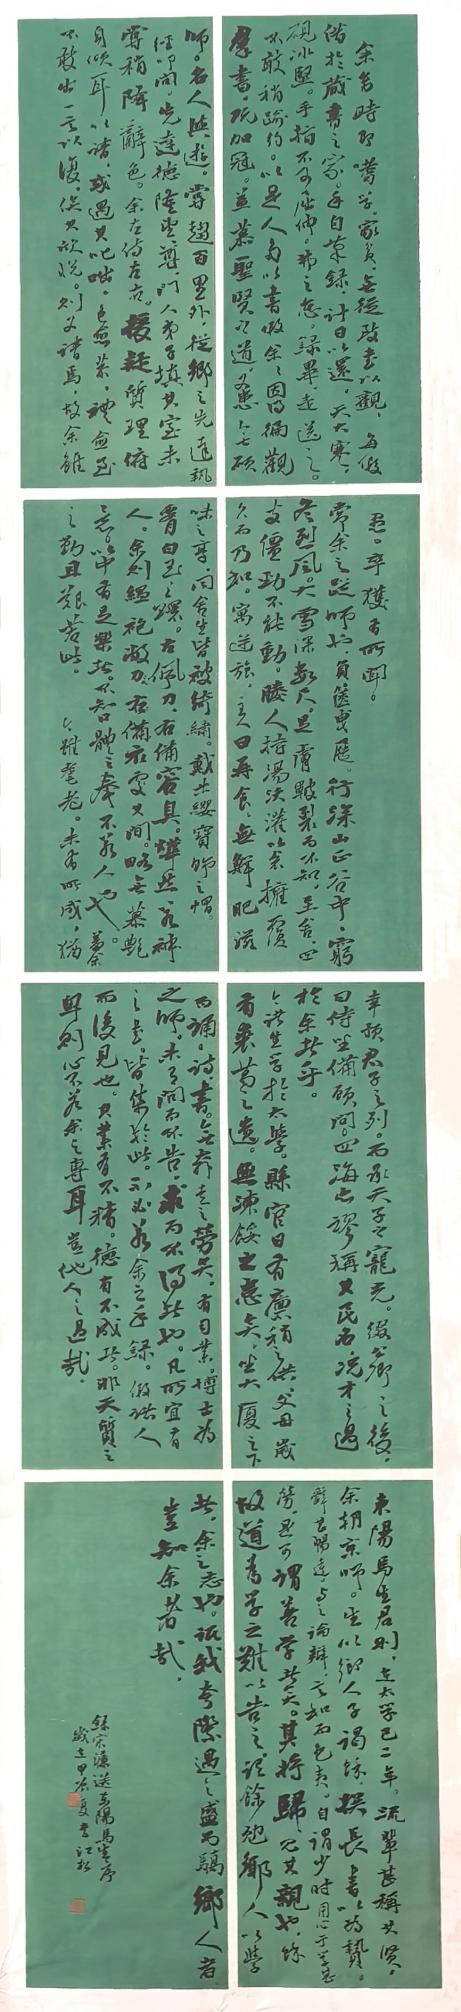 余幼時即嗜學。家貧。無從致書以觀。每假
借於藏書之家。手自筆錄。計日以還。天大寒。
硯冰堅。手指不可屈伸。弗之怠。錄畢。走送之。
不敢稍逾約。以是人多以書假余。余因得徧觀
群書。既加冠。益慕聖賢之道。又患無碩
師。名人與遊。嘗趨百里外。從鄉之先達執
經叩問。先達德隆望尊。門人弟子填其室。未
嘗稍降辭色。余立侍左右。援疑質理。俯
身傾耳以請。或遇其叱咄。色愈恭。禮愈至。
不敢出一言以復。俟其欣悅。則又請焉。故余雖
愚。卒獲有所聞。
當余之從師也。負篋曳屣。行深山巨谷中。窮
冬烈風。大雪深數尺。足膚皸裂而不知。至舍。四
支僵勁不能動。媵人持湯沃灌。以衾擁覆。
久而乃和。寓逆旅。主人日再食。無鮮肥滋
味之享。同舍生皆被綺繡。戴朱纓寶飾之帽。
腰白玉之環。左佩刀。右備容臭。燁然若神
人。余則縕袍敝刀。右備衣處其間。略無慕艷
意。以中有足樂者。不知口體之奉不若人也。蓋余
之勤且艱若此。今雖耄老。未有所成。猶
幸預君子之列。而承天子之寵光。綴公卿之後。
日侍坐備顧問。四海亦謬稱其氏名。況才之過
於余者乎。
今諸生學於太學。縣官日有廩稍之供。父母歲
有裘葛之遺。無凍餒之患矣。坐大廈之下
而誦詩書。無奔走之勞矣。有司業博士為
之師。未有問而不告。求而不得者也。凡所宜有
之書。皆集於此。不必若余之手錄。假諸人
而後見也。其業有不精。德有不成者。非天質之
卑。則心不若余之專耳。豈他人之過哉。
東陽馬生君則。在太學已二年。流輩甚稱其賢。
余朝京師。生以鄉人子謁余。撰長書以為贄。
辭甚暢達。與之論辯。言和而色夷。自謂少時用心于學甚
勞。是可謂善學者矣。其將歸見其親也。余
故道為學之難以告之。謂余勉鄉人以學
者。余之志也。詆我夸際遇之盛而驕鄉人者。
豈知余者哉。
錄宋濂送東陽馬生序
歲在甲辰夏書江松